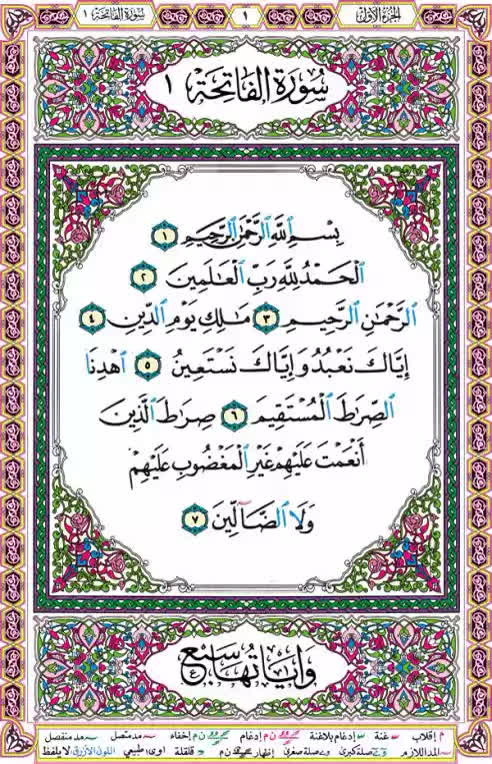 الجزء الأول ١ سورة الفاتحة ١
سُورَةُ الْفَاتِحَةِ ١
بِسْمِ اللَّهِ الرَّحْمَٰنِ الرَّحِيمِ ١
الْحَمْدُ لِلَّهِ رَبِّ الْعَالَمِينَ ٢
الرَّحْمَٰنِ الرَّحِيمِ ٣ مَالِكِ يَوْمِ الدِّينِ ٤
إِيَّاكَ نَعْبُدُ وَإِيَّاكَ نَسْتَعِينُ ٥ اهْدِنَا
الصِّرَاطَ الْمُسْتَقِيمَ ٦ صِرَاطَ الَّذِينَ
أَنْعَمْتَ عَلَيْهِمْ غَيْرِ الْمَغْضُوبِ عَلَيْهِمْ
وَلَا الضَّالِّينَ ٧
وَآيَاتُهَا سَبْعٌ
م إقلاب غنة إدغام بلاغنة ن م إدغام ن م إخفاء مد متصل مد منفصل
المد اللازم صلة كبرى صلة صغرى إظهار ن م قلقلة أوى: طبيعي اللون الأزرق لا يلفظ